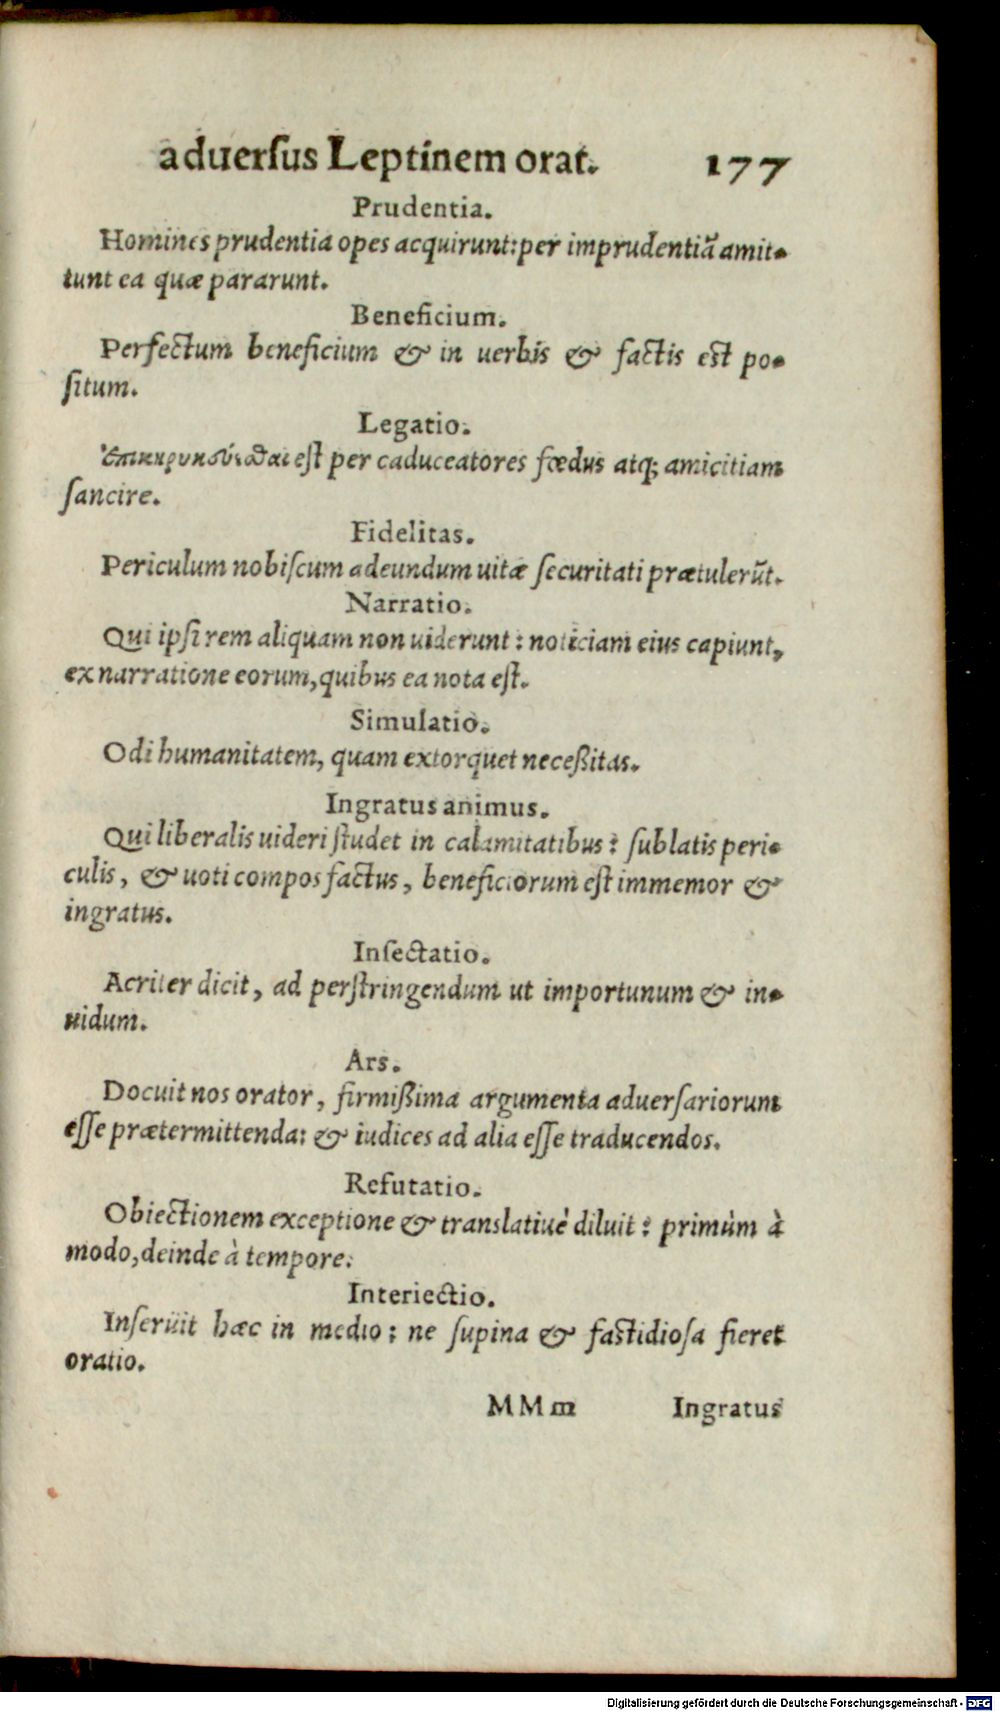 aduerſus Leptinem orat. 177
Prudentia.
Homines prudentia opes acquirunt: per imprudentiā amit-
tunt ea quæ pararunt.
Beneficium.
Perfectum beneficium & in uerbis & factis est po-
ſitum.
Legatio.
eſt per caduceatores fœdus atq; amicitiam
ſancire.
Fidelitas.
Periculum nobiſcum adeundum uitæ ſecuritati prætulerūt.
Narratio.
Qui ipſi rem aliquam non uiderunt: noticiam eius capiunt,
ex narratione eorum, quibus ea nota eſt.
Simulatio.
Odi humanitatem, quam extorquet neceßitas.
Ingratus animus.
Qui liberalis uideri ſtudet in calamitatibus: ſublatis peri-
culis, & uoti compos factus, beneficiorum eſt immemor &
ingratus.
Inſectatio.
Acriter dicit, ad perſtringendum ut importunum & in-
uidum.
Ars.
Docuit nos orator, firmißima argumenta aduerſariorum
eſſe prætermittenda: & iudices ad alia eſſe traducendos.
Refutatio.
Obiectionem exceptione & translatiuè diluit: primùm à
modo, deinde à tempore.
Interiectio.
Inſeruit hæc in medio: ne ſupina & faſtidioſa fieret
oratio.
MMm Ingratus
Digitalisierung gefördert durch die Deutsche Forschungsgemeinschaft - DFG